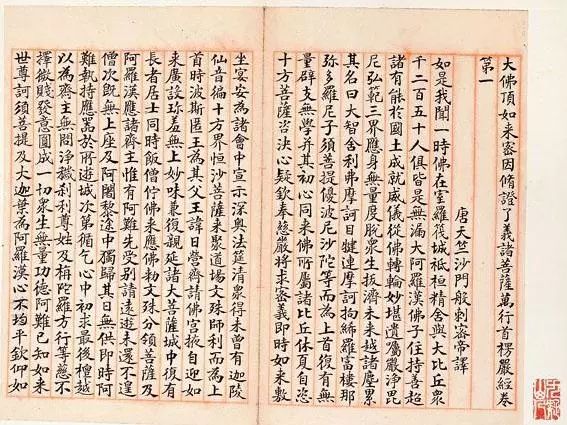 大佛頂如來密因脩證了義諸菩薩萬行首楞嚴經卷
第一
唐天竺沙門般剌密帝譯
如是我聞一時佛在室羅筏城祇桓精舍與大比丘衆
千二百五十人俱皆是無漏大阿羅漢佛子住持善超
諸有能於國土成就威儀從佛轉輪妙堪遺囑嚴淨毘
尼弘範三界應身無量度脫衆生拔濟未來越諸塵累
其名曰大智舍利弗摩訶目犍連摩訶拘絺羅富樓那
弥多羅尼子須菩提優波尼沙陀等而為上首復有無
量辟支無學并其初心同來佛所屬諸比丘休夏自恣
十方菩薩咨決心疑欽奉慈嚴將求密義即時如來敷
坐宴安為諸會中宣示深奥法筵清衆得未曾有迦陵
仙音徧十方界恒沙菩薩來聚道場文殊師利而為上
首時波斯匿王為其父王諱日營齋請佛宮掖自迎如
來廣設珍羞無上妙味兼復親延諸大菩薩城中復有
長者居士同時飯僧佇佛來應佛勑文殊分領菩薩及
阿羅漢應諸齋主惟有阿難先受別請遠遊未還不遑
僧次既無上座及阿闍黎途中獨歸其日無供即時阿
難執持應器於所遊城次第循乞心中初求最後檀越
以為齋主無問淨穢刹利尊姓及旃陀羅方行等慈不
擇微賤發意圓成一切衆生無量功德阿難已知如來
世尊訶須菩提及大迦葉為阿羅漢心不均平欽仰如